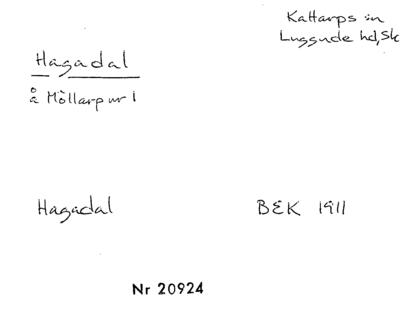 Kattarps sn
Luggude hd, Sk
Hagadal
å Möllarp nr 1
Hagadal BEK 1911
Nr 20924